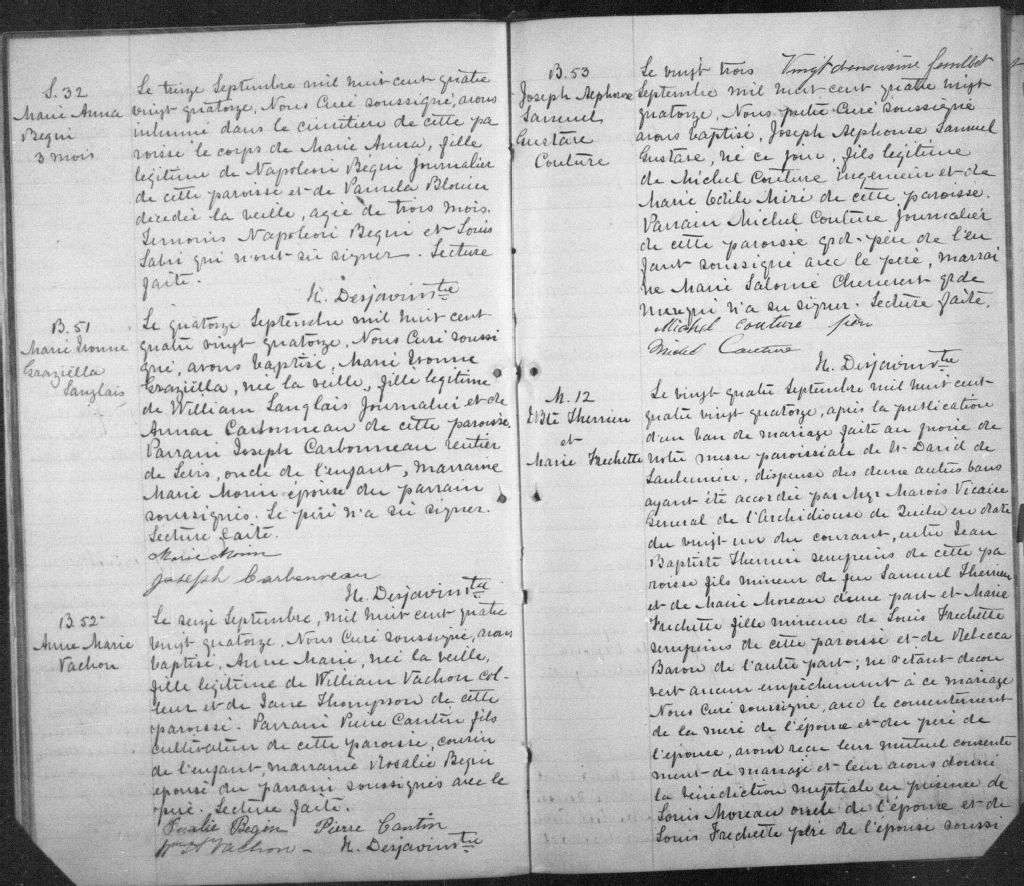 S. 32
Marie Anna
Begin
3 mois
Le treize Septembre mil huit cent quatre
vingt quatorze, Nous Curé soussigné, avons
inhumé dans le cimetière de cette pa
roisse le corps de Marie Anna, fille
legitime de Napoleon Bégin Journalier
de cette paroisse et de Pamela Blouin
décédée la veille, agée de trois mois.
Temoins Napoleon Begin et Louis
qui n'ont su signer. Lecture
faite.
N. Desjardins ptre
B. 51
Marie Ivonne
Graziëlla
Langlais
Le quatorze Septembre mil huit cent
quatre vingt quatorze, Nous Curé soussi
gné, avons baptisé, Marie Ivonne
Graziëlla, née la veille, fille legitime
de William Langlais Journalier et de
Anna Carbonneau de cette paroisse.
Parrain Joseph Carbonneau rentier
de Levis, oncle de l'enfant, marraine
Marie Morin épouse du parrain
soussignés. Le père n'a su signer.
Lecture faite.
Marie Morin
Joseph Carbonneau
N. Desjardins ptre
B. 52
Anne Marie
Vachon
Le seize Septembre, mil huit cent quatre
vingt quatorze, Nous Curé soussigné, avons
baptisé, Anne Marie, née la veille,
fille legitime de William Vachon col-
leur et de Jane Thompson de cette
paroisse. Parrain Pierre Cantin fils
cultivateur de cette paroisse, cousin
de l'enfant, marraine Rosalie Begin
épouse du parrain soussignés avec le
père. Lecture faite.
Rosalie Begin Pierre Cantin
Vachon - N. Desjardins ptre
Vingt deuxieme feuillet
B. 53
Joseph Alphonse
Samuel
Gustave
Couture
Le vingt trois
Septembre mil huit cent quatre vingt
quatorze, Nous ptre Curé soussigné
avons baptisé, Joseph Alphonse Samuel
Gustave, né ce jour, fils légitime
de Michel Couture ingenieur et de
Marie Odile de cette paroisse.
Parrain Michel Couture Journalier
de cette paroisse grd-père de l'en
fant soussigné avec le père, marrai
ne Marie Salomé grde
mère qui n'a su signer. Lecture faite.
Michel Couture
Michel Couture
N. Desjardins ptre
M. 12
J Bte Therrien
et
Marie Frechette
Le vingt quatre Septembre mil huit cent
quatre vingt quatorze, après la publication
d'un ban de mariage faite au prône de
notre messe paroissiale de St David de
Lauberivière, dispense des deux autres bans
ayant été accordée par Mgr Marois Vicaire
General de l'Archidiocèse de Quebec en date
du vingt un du courant, entre Jean
Baptiste Therrien de cette pa
roisse fils mineur de feu Samuel Therrien
et de Marie Moreau d'une part et Marie
Frechette fille mineure de Louis Frechette
de cette paroisse et de Rebecca
Baron de l'autre part; ne s'étant decou
vert aucun empêchement à ce mariage
Nous Curé soussigné, avec le consentement
de la mère de l'époux et du père de
l'épouse, avons reçu leur mutuel consente
ment de mariage et leur avons donné
la bénédiction nuptiale en présence de
Louis Moreau oncle de l'époux et de
Louis Frechette père de l'épouse soussi